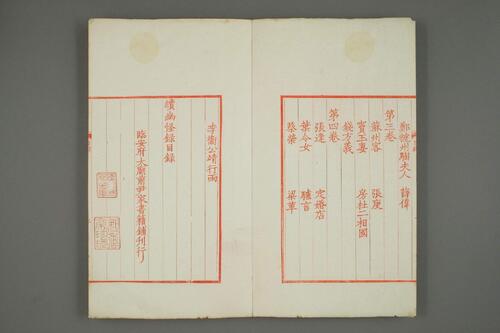 鄭虢州騊夫人 薛偉
第三卷
蘇州客 張庾
竇玉妻 房杜二相國
錢方義
第四卷
張逢 定婚店
葉令女 驢言
蔡榮 梁革
李衛公靖行雨
續幽怪錄目錄
臨安府太廟前尹家書籍鋪刊行